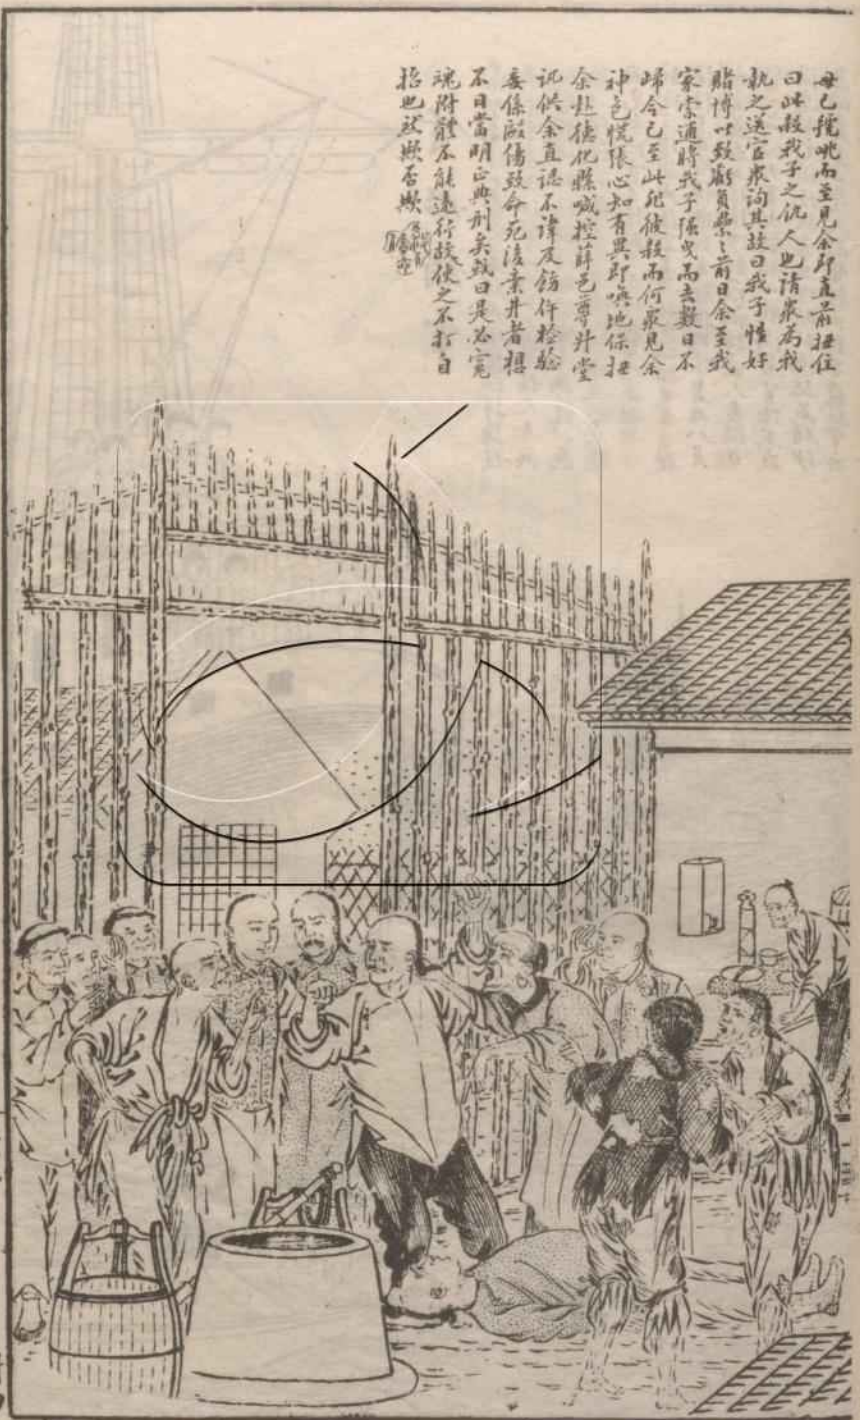 母已號咷而至見余即直前扭住
曰此殺我子之仇人也請衆為我
執之送官衆詢其故曰我子性好
賭博以致虧負纍纍前日余至我
家索逋將我子强曳而去數日不
歸今已至此非彼殺而何衆見余
神色慌張心知有異即喚地保扭
余赴德化縣喊控薛邑尊升堂
訊供余直認不諱及飭仵檢驗
委係毆傷致命死後棄井者想
不日當明正典刑矣或曰是必寃
魂附體不能遠行故使之不打自
招也然歟否歟